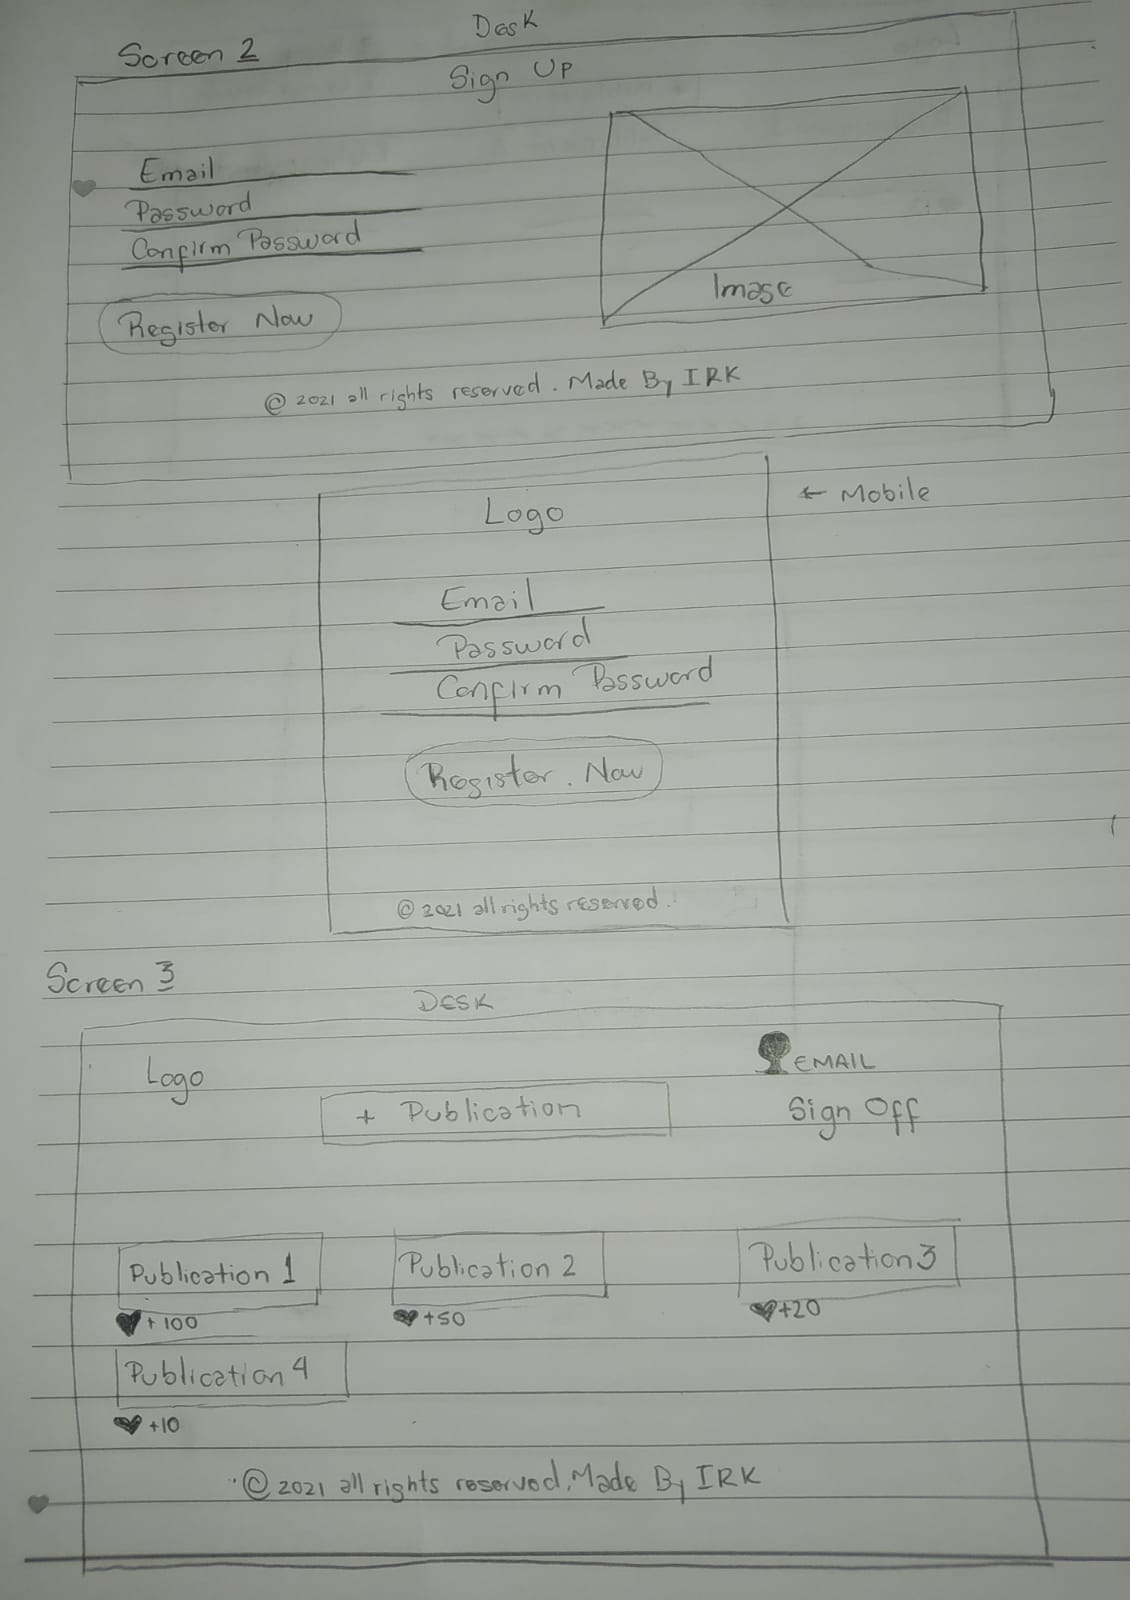 Desk
Screen 2
Sign Up
Email
Password
Confirm Password
Register Now
Image
© 2021 all rights reserved. Made By IRK
← Mobile
Logo
Email
Password
Confirm Password
Register. Now
© 2021 all rights reserved.
Screen 3
DESK
Logo
EMAIL
+ Publication
Sign Off
Publication 1
Publication 2
Publication 3
+100
+50
+20
Publication 4
+10
© 2021 all rights reserved. Made By IRK